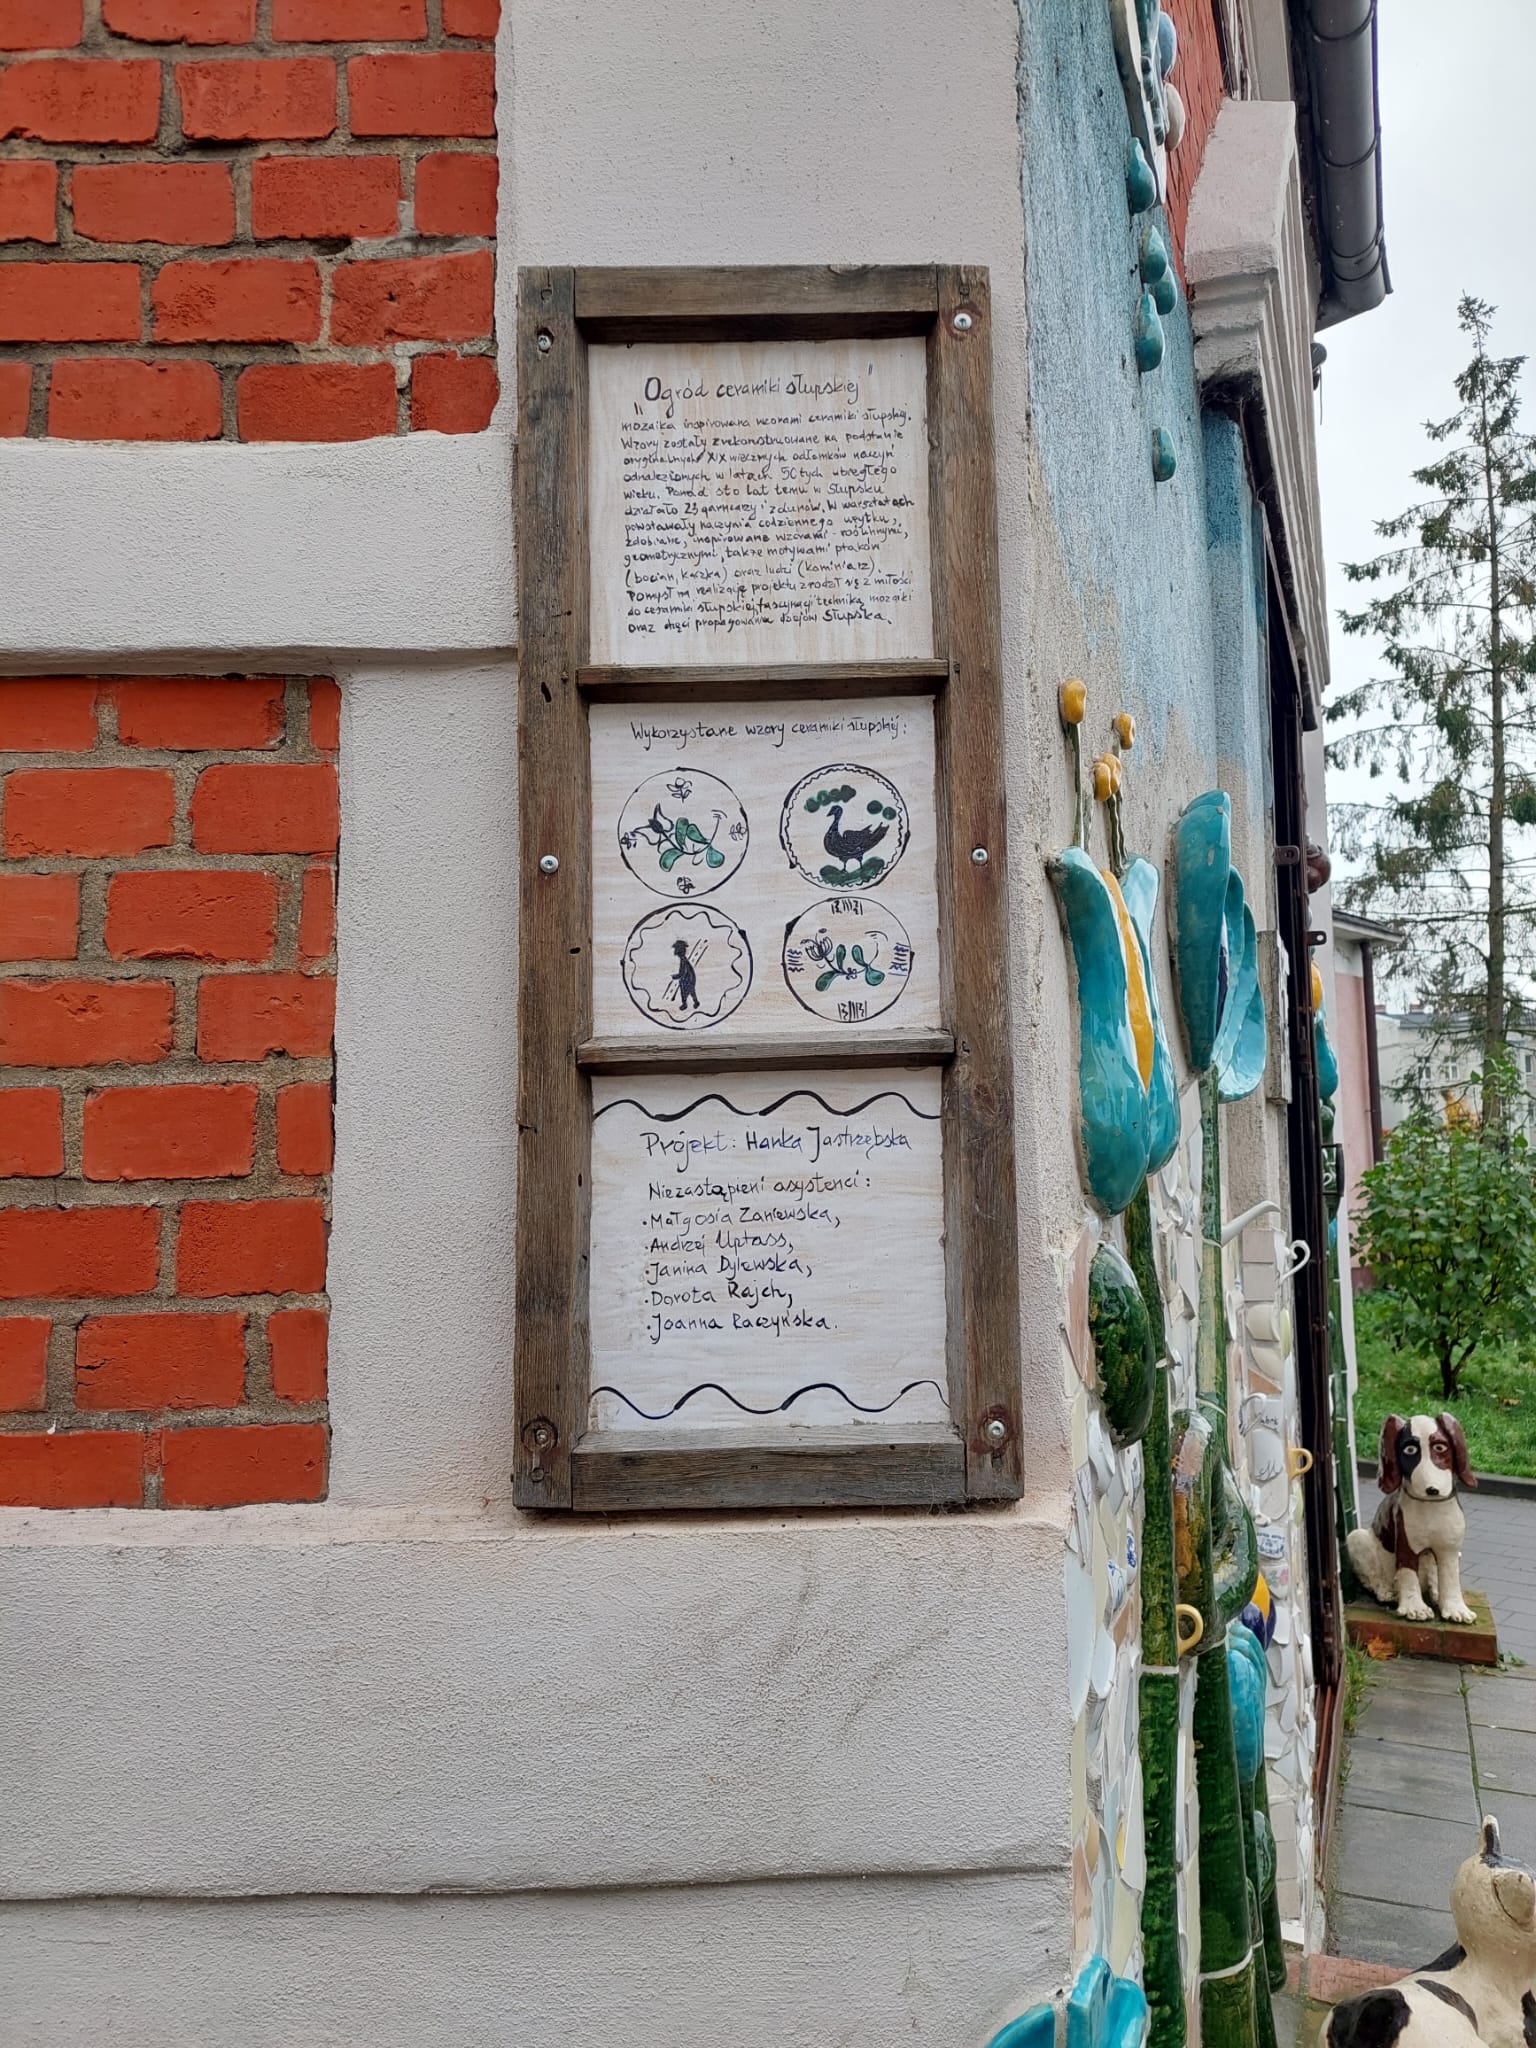 „Ogród ceramiki słupskiej"
mozaika inspirowana wzorami ceramiki słupskiej.
Wzory zostały zrekonstruowane na podstawie
oryginalnych XIX wiecznych odłamków naczyń
odnalezionych w latach 50tych ubiegłego
wieku. Ponad sto lat temu w Słupsku
działało 23 garncarzy i zdunów. W warsztatach
powstawały naczynia codziennego użytku,
zdobione, inspirowane wzorami - roślinnymi,
geometrycznymi, także motywami ptaków
(bocian, kaczka) oraz ludzi (kominiarz).
Pomysł na realizację projektu zrodził się z miłości
do ceramiki słupskiej, fascynacji techniką mozaiki
oraz chęci propagowania dziejów Słupska.
Wykorzystane wzory ceramiki słupskiej:
Projekt: Hanka Jastrzębska
Niezastąpieni asystenci:
• Małgosia Zaniewska,
• Andrzej Uptass,
• Janina Dylewska,
• Dorota Rajch,
• Joanna Raczyńska.